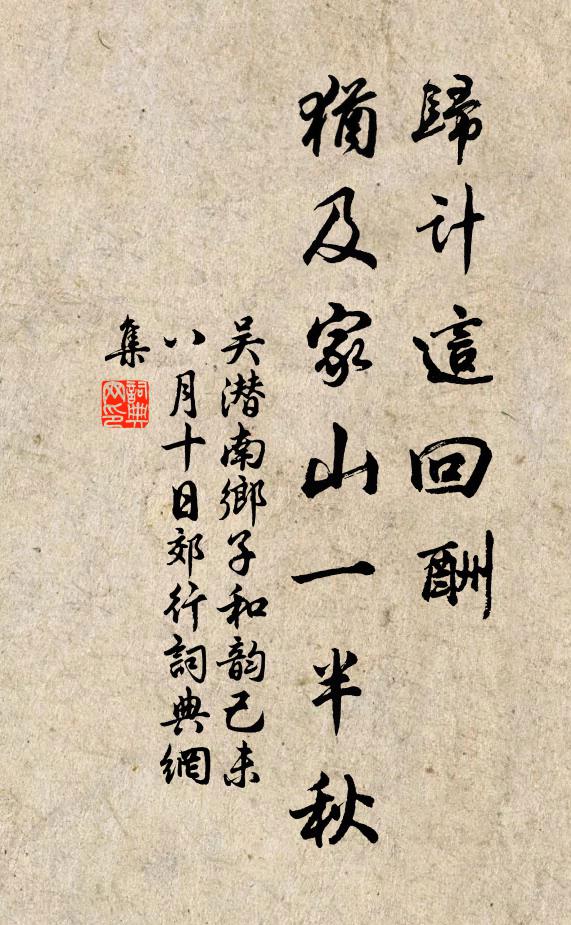 歸计這回酬
猶及家山一半秋
吴潛南鄉子和韵己未
八月十日郊行詞典網
集
詞典
网印